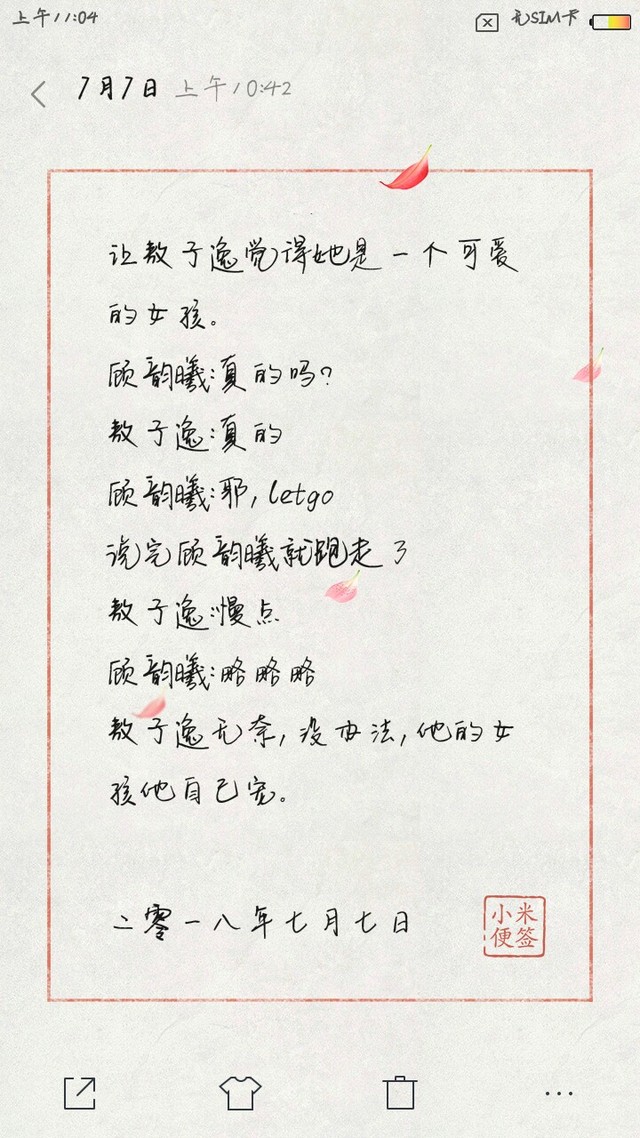 上午11:04
无SIM卡
7月7日 上午10:42
让敖子逸觉得她是一个可爱
的女孩。
顾韵曦:真的吗?
敖子逸:真的
顾韵曦:耶,letgo
说完顾韵曦就跑走了
敖子逸:慢点
顾韵曦:略略略
敖子逸无奈,没办法,他的女
孩他自己宠。
二零一八年七月七日
小米
便签